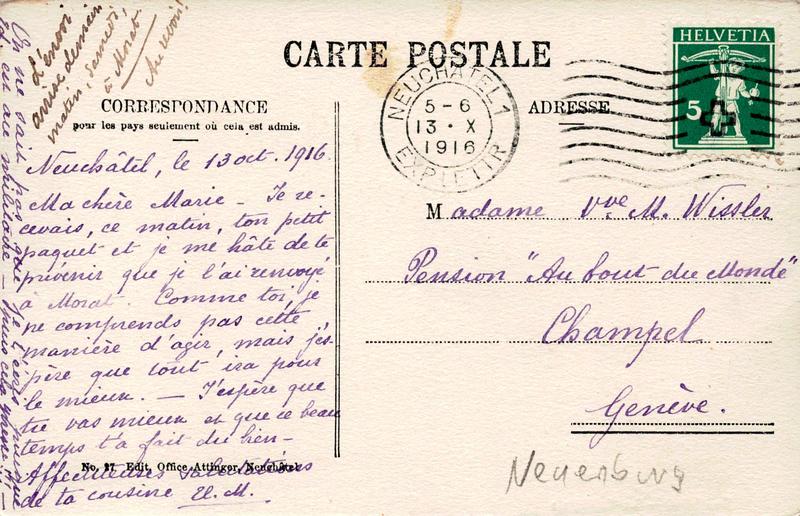 CARTE POSTALE
HELVETIA
5
NEUCHATEL 1
5-6
13·X
1916
EXP. LETTR.
CORRESPONDANCE
pour les pays seulement où cela est admis.
ADRESSE
L'envoi
arrive demain
matin, samedi,
à Morat.
Au revoir!
Neuchâtel, le 13 oct. 1916.
Ma chère Marie – Je re-
cevais, ce matin, ton petit
paquet et je me hâte de te
prévenir que je l'ai renvoyé
à Morat. Comme toi, je
ne comprends pas cette
manière d'agir, mais j'es-
père que tout ira pour
le mieux. – J'espère que
tu vas mieux et que ce beau
temps t'a fait du bien –
Affectueuses salutations
de ta cousine El. M.
No. 27 Edit. Office Attinger, Neuchâtel
On ne sait pas que je t'écris puisque
Madame Vve M. Wissler
Pension "Au bout du Monde"
Champel
Genève.
Neuenburg